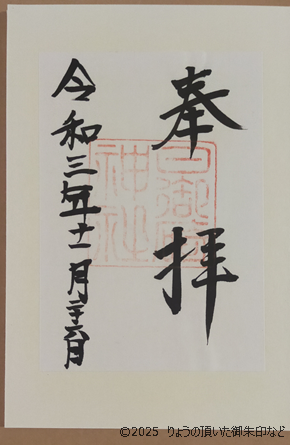 奉拝
神社
令和三年十一月二十六日
©2025 りょうの頂いた御朱印など